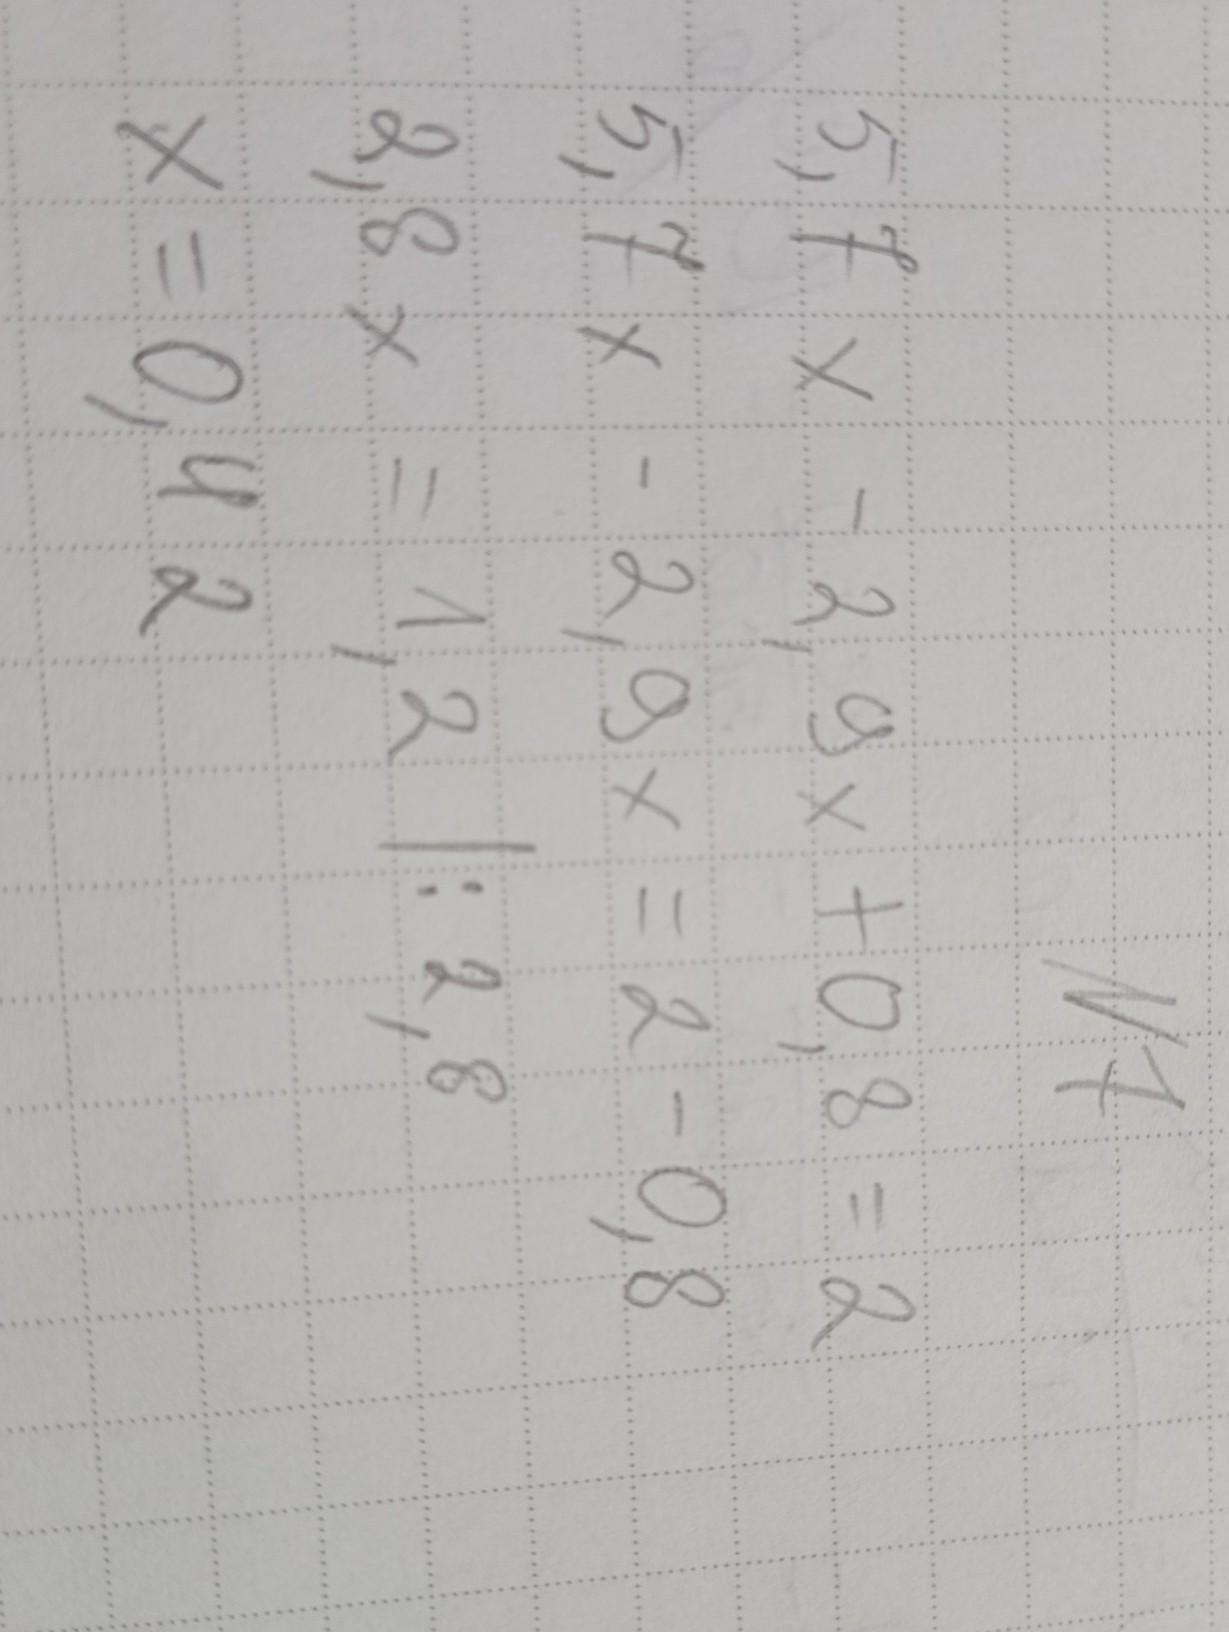 N7
5,7x - 2,9x + 0,8 = 2
5,7x - 2,9x = 2 - 0,8
2,8x = 1,2 | : 2,8
x = 0,42